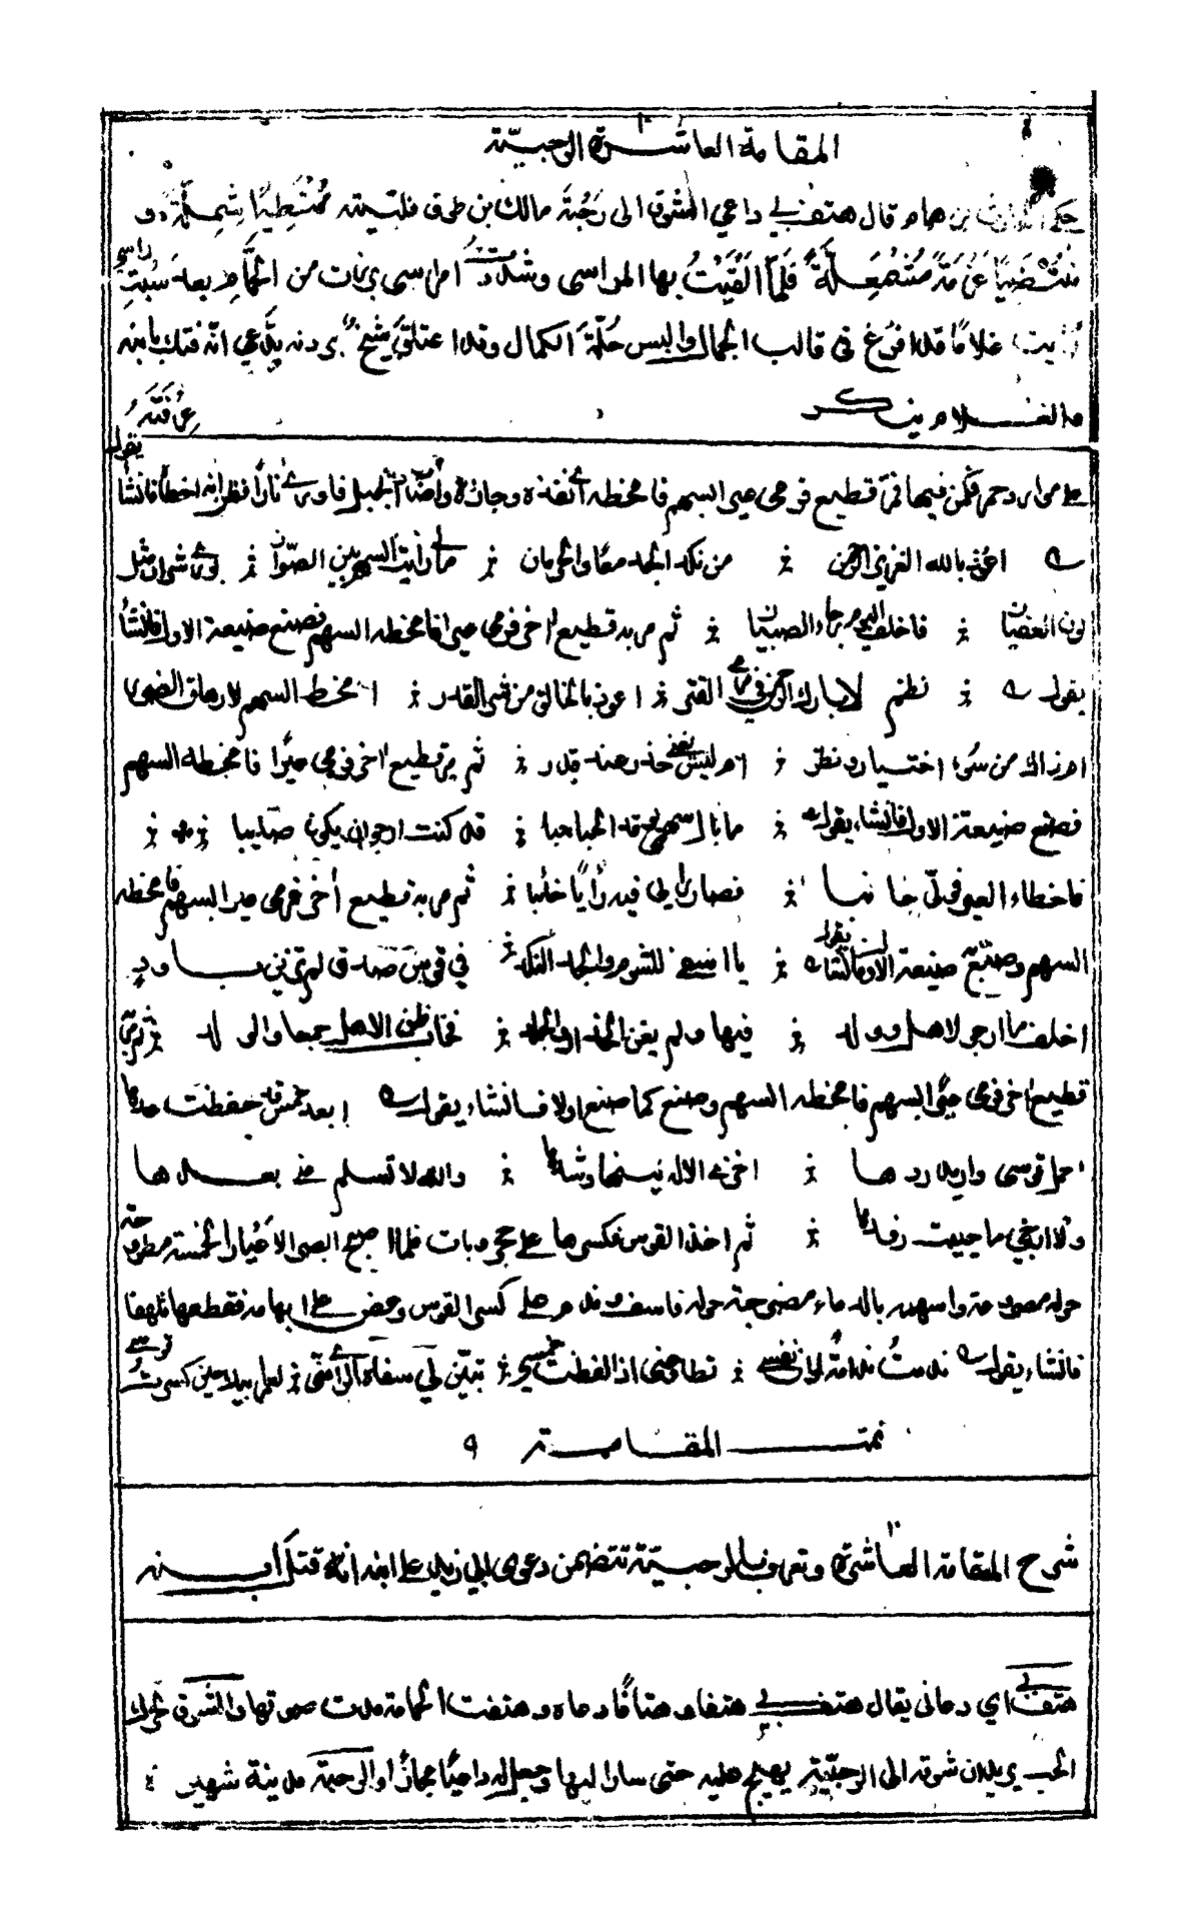 المقامة العاشرة الرحبيّة
بن همام قال هتف بي داعي الشوق الى رَحْبَةَ مالك بن طوق فلبّيته مُمْتَطِيًا شِمِلَّةً و
مُنْتَضِيًا عَزْمَةً مُشْمَعِلَّةً فَلمّا اَلقَيْتُ بها المراسى وشددتُ امراسى برزت من الحمّام بعد سَبْتِ راسى
رايت غلامًا قد افرغ فى قالب الجمال والبس حُلّةَ الكمال وقد اعتلق شيخٌ بردنه يدّعي انّه فتك بابنه
والغلام ينكر عِرْفَتَهُ
على موارد حمر فكمن فيها فمرّ قطيع فرمى عيرا السهم فامخطه انفذه وجازه واصاب الجبل فاورى نارًا فظن انه اخطأ فانشا يقول
اعوذ بالله العزيز الرحمن من نكد الجد معًا والحرمان مالى رايت السهم بين الصوّان يورى شرارا مثل
لون العقيان فاخلف اليوم رجاء الصبيان ثم مر به قطيع اخر فرمى عيرا فامخطه السهم فصنع صنيعة الاول فانشا
يقول نظم لا بارك الرحمن فى رمى القتر اعوذ بالخالق من شر القدر امخط السهم لارهاق الضرر
ام ذاك من سوء اختيار ونظر ام ليس يغنى حذر عند قدر ثم مر قطيع اخر فرمى عيرا فامخطه السهم
فصنع صنيعة الاول فانشا يقول ما بال سهمى يوقد الحباحبا قد كنت ارجو ان يكون صايبا
فاخطاء العير وولّى جانبا فصار رايى فيه رأيًا خائبا ثم مر به قطيع اخر فرمى عير السهم فامخطه
السهم وصنع صنيعة الاول فانشا يقول يا اسفى للشوم والجد النكد في قوس صدق لم تزين باود
اخلف ما ارجو لاهل وولد فيها ولم يغن الحذار والجلد فخاب ظن الاهل جمعا والولد ثم مر به
قطيع اخر فرمى عيرا السهم فامخطه السهم وصنع كما صنع اولا فانشاء يقول ابعد خمس قد حفظت عدها
احمل قوسى واريد ردها اخزى الاله لينها وشدها والله لا تسلم عندى بعدها
ولا ارجي ما حييت رفدها ثم اخذ القوس فكسرها على حجر وبات فلما اصبح ابصر الاعيار الخمسة مطروحة
حوله مصروعة واسهمه بالدماء مضرجة حوله فاسف وندم على كسر القوس وعض على ابهامه فقطعها تلهفا
فانشاء يقول ندمتُ ندامةً لو ان نفسى تطاوعنى اذا لقطعت خمسي تبيّن لي سفاه الراى منّى لعمر ابيك حين كسرتُ قوسى
تمت المقامة
شرح المقامة العاشرة وتعرف بالرحبية تتضمن دعوى ابي زيد على ابنه انه قتل ابنه
هتف بي اي دعانى يقال هتف بي هتفا وهتافًا دعاه وهتفت الحمامة مدت صوتها والشوق تحرك
الحب يريد ان شوقه الى الرحبّة يهيج عليه حتى سار اليها وجعل له داعيًا مجازًا والرحبة مدينة شهير